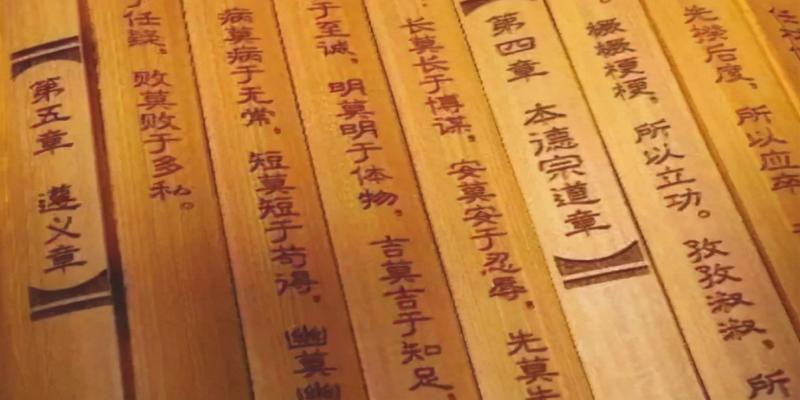 先揆后度，所以
橛橛梗梗，所以立功。孜孜淑淑，所
第四章 本德宗道章
长莫长于博谋，安莫安于忍辱，先莫先
于至诚，明莫明于体物，吉莫吉于知足，
病莫病于无常，短莫短于苟得，幽莫幽
于任疑，败莫败于多私。
第五章 遵义章